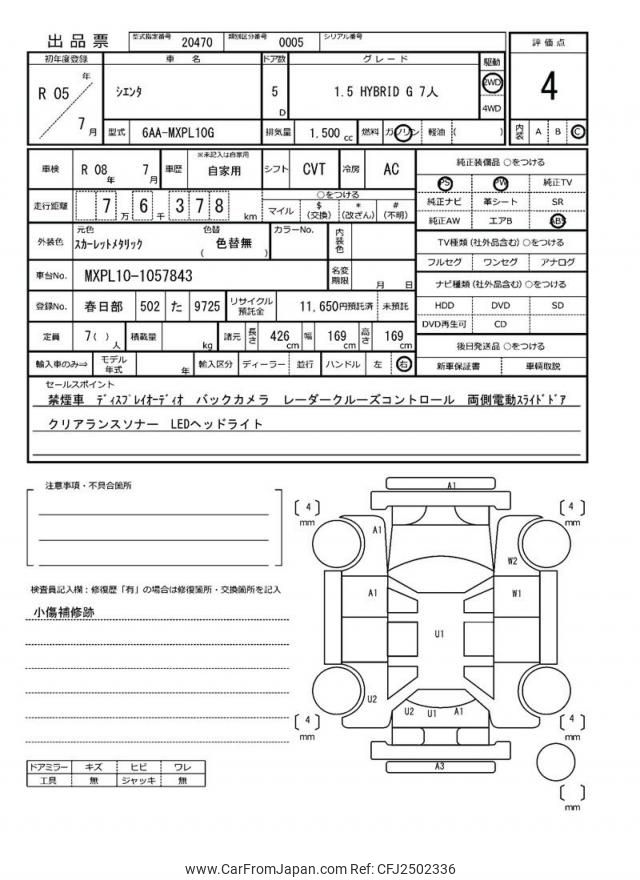 出品票 型式指定番号 20470 類別区分番号 0005 シリアル番号
評価点
4
内装 A B C
初年度登録 車 名 ドア数 グレード 駆動
R 05 年 7 月
シエンタ
5 D
1.5 HYBRID G 7人
2WD
4WD
型式 6AA-MXPL10G 排気量 1.500 cc 燃料 ガソリン 軽油 ( )
車検 R 08 年 7 月 車歴 ※未記入は自家用 自家用 シフト CVT 冷房 AC
走行距離 7 万 6 千 3 7 8 km
○をつける
マイル $ (交換) * (改ざん) # (不明)
外装色 元色 スカーレットメタリック 色替 ( 色替無 ) カラーNo. 内装色
車台No. MXPL10-1057843 名変期限 月 日
登録No. 春日部 502 た 9725 リサイクル預託金 11,650円預託済 未預託
定員 7( ) 人 積載量 kg 諸元 長さ 426 cm 幅 169 cm 高さ 169 cm
輸入車のみ⇒ モデル年式 年 輸入区分 ディーラー 並行 ハンドル 左 右
純正装備品 ○をつける
PS PW 純正TV
純正ナビ 革シート SR
純正AW エアB ABS
TV種類 (社外品含む) ○をつける
フルセグ ワンセグ アナログ
ナビ種類 (社外品含む) ○をつける
HDD DVD SD
DVD再生可 CD
後日発送品 ○をつける
新車保証書 車輌取説
セールスポイント
禁煙車 ディスプレイオーディオ バックカメラ レーダークルーズコントロール 両側電動スライドドア
クリアランスソナー LEDヘッドライト
注意事項・不具合箇所
検査員記入欄：修復歴「有」の場合は修復箇所・交換箇所を記入
小傷補修跡
ドアミラー キズ ヒビ ワレ
工具 無 ジャッキ 無
A1
[ 4 ] mm
[ 4 ] mm
A1
W2
A1
W1
U1
U2
U2 U1 A1
[ 4 ] mm
[ 4 ] mm
A3
[ ] mm
www.CarFromJapan.com Ref: CFJ2502336